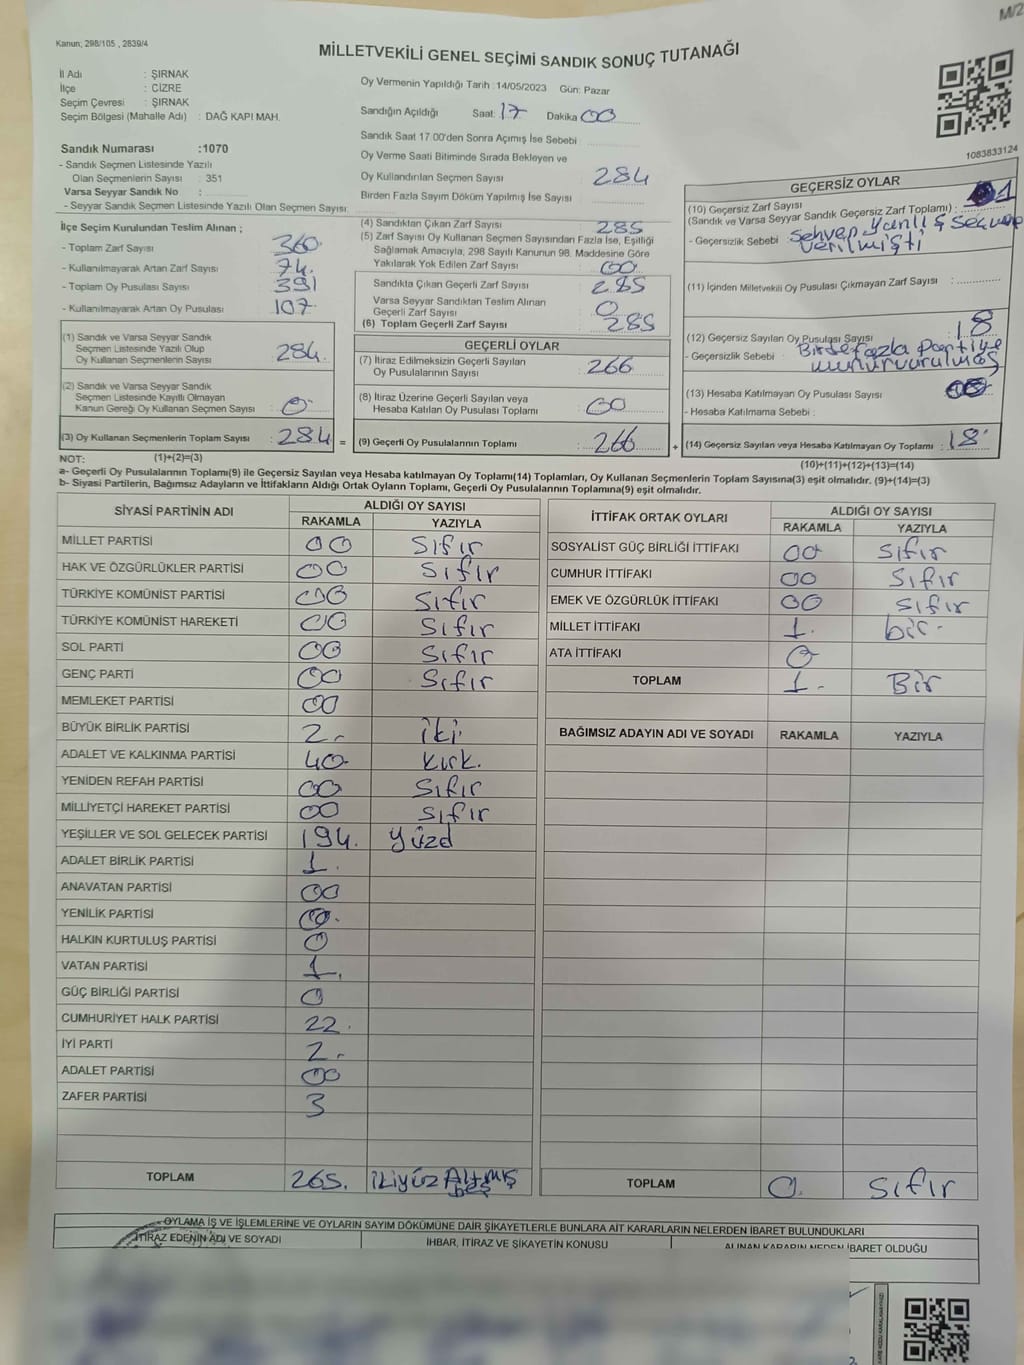 M/2
Kanun; 298/105 , 2839/4
MİLLETVEKİLİ GENEL SEÇİMİ SANDIK SONUÇ TUTANAĞI
İl Adı : ŞIRNAK
İlçe : CİZRE
Seçim Çevresi : ŞIRNAK
Seçim Bölgesi (Mahalle Adı) : DAĞ KAPI MAH.
Sandık Numarası :1070
- Sandık Seçmen Listesinde Yazılı
Olan Seçmenlerin Sayısı : 351
Varsa Seyyar Sandık No :
- Seyyar Sandık Seçmen Listesinde Yazılı Olan Seçmen Sayısı:
İlçe Seçim Kurulundan Teslim Alınan ;
- Toplam Zarf Sayısı : 360
- Kullanılmayarak Artan Zarf Sayısı : 74.
- Toplam Oy Pusulası Sayısı : 391
- Kullanılmayarak Artan Oy Pusulası : 107
(1) Sandık ve Varsa Seyyar Sandık
Seçmen Listesinde Yazılı Olup
Oy Kullanan Seçmenlerin Sayısı : 284.
(2) Sandık ve Varsa Seyyar Sandık
Seçmen Listesinde Kayıtlı Olmayan
Kanun Gereği Oy Kullanan Seçmen Sayısı : 0
(3) Oy Kullanan Seçmenlerin Toplam Sayısı : 284 =
Oy Vermenin Yapıldığı Tarih :14/05/2023 Gün: Pazar
Sandığın Açıldığı Saat: 17 Dakika 00
Sandık Saat 17.00'den Sonra Açımış İse Sebebi :
Oy Verme Saati Bitiminde Sırada Bekleyen ve
Oy Kullandırılan Seçmen Sayısı 284
Birden Fazla Sayım Döküm Yapılmış İse Sayısı
(4) Sandıktan Çıkan Zarf Sayısı 285
(5) Zarf Sayısı Oy Kullanan Seçmen Sayısından Fazla İse, Eşitliği
Sağlamak Amacıyla, 298 Sayılı Kanunun 98. Maddesine Göre
Yakılarak Yok Edilen Zarf Sayısı : 00
Sandıkta Çıkan Geçerli Zarf Sayısı : 285
Varsa Seyyar Sandıktan Teslim Alınan
Geçerli Zarf Sayısı : 0
(6) Toplam Geçerli Zarf Sayısı : 285
GEÇERLİ OYLAR
(7) İtiraz Edilmeksizin Geçerli Sayılan
Oy Pusulalarının Sayısı : 266
(8) İtiraz Üzerine Geçerli Sayılan veya
Hesaba Katılan Oy Pusulası Toplamı : 00
(9) Geçerli Oy Pusulalarının Toplamı : 266 +
1083833124
GEÇERSİZ OYLAR
(10) Geçersiz Zarf Sayısı
(Sandık ve Varsa Seyyar Sandık Geçersiz Zarf Toplamı) : 1
- Geçersizlik Sebebi : Sehven Yanlış Seçmene
Verilmişti
(11) İçinden Milletvekili Oy Pusulası Çıkmayan Zarf Sayısı :
(12) Geçersiz Sayılan Oy Pusulası Sayısı : 18
- Geçersizlik Sebebi : Birdefazla partiye
muhurvurulmuş
(13) Hesaba Katılmayan Oy Pusulası Sayısı :
- Hesaba Katılmama Sebebi :
(14) Geçersiz Sayılan veya Hesaba Katılmayan Oy Toplamı : 18
NOT: (1)+(2)=(3)
(10)+(11)+(12)+(13)=(14)
a- Geçerli Oy Pusulalarının Toplamı(9) ile Geçersiz Sayılan veya Hesaba katılmayan Oy Toplamı(14) Toplamları, Oy Kullanan Seçmenlerin Toplam Sayısına(3) eşit olmalıdır. (9)+(14)=(3)
b- Siyasi Partilerin, Bağımsız Adayların ve İttifakların Aldığı Ortak Oyların Toplamı, Geçerli Oy Pusulalarının Toplamına(9) eşit olmalıdır.
SİYASİ PARTİNİN ADI ALDIĞI OY SAYISI
RAKAMLA YAZIYLA
MİLLET PARTİSİ 00 Sıfır
HAK VE ÖZGÜRLÜKLER PARTİSİ 00 Sıfır
TÜRKİYE KOMÜNİST PARTİSİ 00 Sıfır
TÜRKİYE KOMÜNİST HAREKETİ 00 Sıfır
SOL PARTİ 00 Sıfır
GENÇ PARTİ 00 Sıfır
MEMLEKET PARTİSİ 00
BÜYÜK BİRLİK PARTİSİ 2. iki
ADALET VE KALKINMA PARTİSİ 40 Kırk.
YENİDEN REFAH PARTİSİ 00 Sıfır
MİLLİYETÇİ HAREKET PARTİSİ 00 Sıfır
YEŞİLLER VE SOL GELECEK PARTİSİ 194. yüzd
ADALET BİRLİK PARTİSİ 1.
ANAVATAN PARTİSİ 00
YENİLİK PARTİSİ 00.
HALKIN KURTULUŞ PARTİSİ 0
VATAN PARTİSİ 1.
GÜÇ BİRLİĞİ PARTİSİ 0
CUMHURİYET HALK PARTİSİ 22.
İYİ PARTİ 2.
ADALET PARTİSİ 00
ZAFER PARTİSİ 3
TOPLAM 265. ikiyüz Altmış
beş
İTTİFAK ORTAK OYLARI ALDIĞI OY SAYISI
RAKAMLA YAZIYLA
SOSYALİST GÜÇ BİRLİĞİ İTTİFAKI 00 Sıfır
CUMHUR İTTİFAKI 00 Sıfır
EMEK VE ÖZGÜRLÜK İTTİFAKI 00 Sıfır
MİLLET İTTİFAKI 1. bir.
ATA İTTİFAKI 0
TOPLAM 1. Bir
BAĞIMSIZ ADAYIN ADI VE SOYADI RAKAMLA YAZIYLA
TOPLAM 0. Sıfır
OYLAMA İŞ VE İŞLEMLERİNE VE OYLARIN SAYIM DÖKÜMÜNE DAİR ŞİKAYETLERLE BUNLARA AİT KARARLARIN NELERDEN İBARET BULUNDUKLARI
İTİRAZ EDENİN ADI VE SOYADI İHBAR, İTİRAZ VE ŞİKAYETİN KONUSU ALINAN KARARIN NEDEN İBARET OLDUĞU